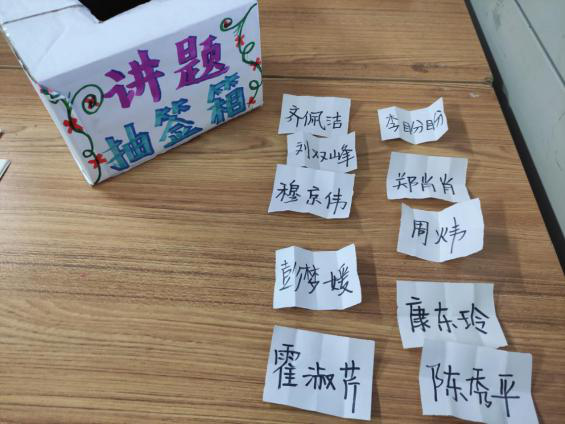 讲题
抽签箱
齐佩洁
刘双峰
穆京伟
彭梦媛
霍淑芹
李盼盼
郑肖肖
周炜
康东玲
陈秀平